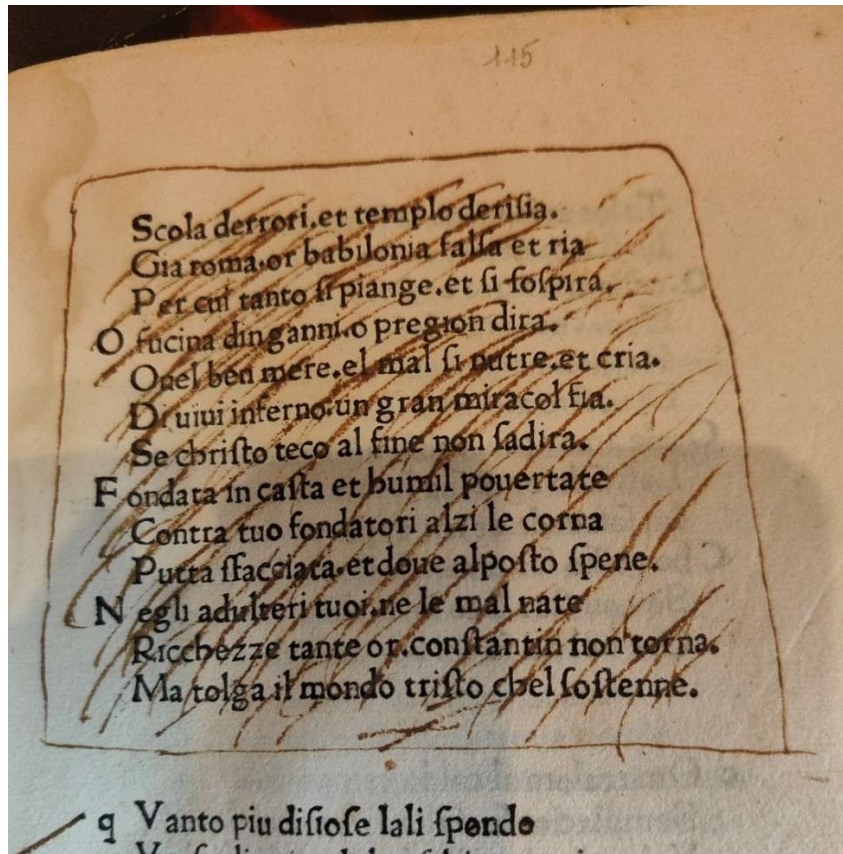 115
Scola derrori.et templo derisia.
Gia roma.or babilonia falsa et ria
Per cui tanto si piange.et si sospira.
O fucina dinganni.o pregion dira.
Ouel ben mere.el mal si nutre.et cria.
Di uiui inferno.un gran miracol fia.
Se christo teco al fine non sadira.
Fondata in casta et humil pouertate
Contra tuo fondatori alzi le corna
Putta sfacciata.et doue alposto spene.
Negli adulteri tuoi.ne le mal nate
Ricchezze tante or.constantin non torna.
Ma tolga il mondo tristo chel sostenne.
q Vanto piu disiose lali spondo